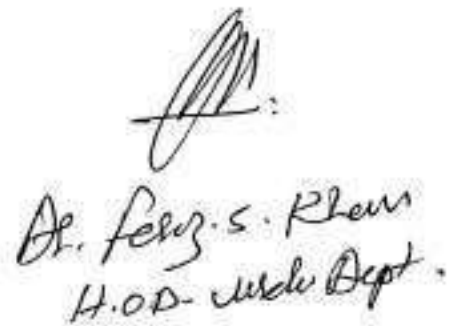 Dr. Feroz. S. Khan
H.O.D- Urdu Dept.